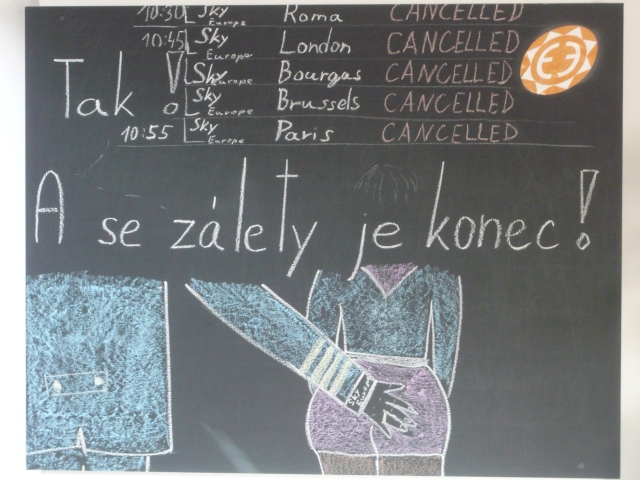 10:30 Sky Europe Roma CANCELLED
10:45 Sky Europe London CANCELLED
Sky Europe Bourgas CANCELLED
Sky Europe Brussels CANCELLED
Tak !
10:55 Sky Europe Paris CANCELLED
A se zálety je konec!
Sky Europe